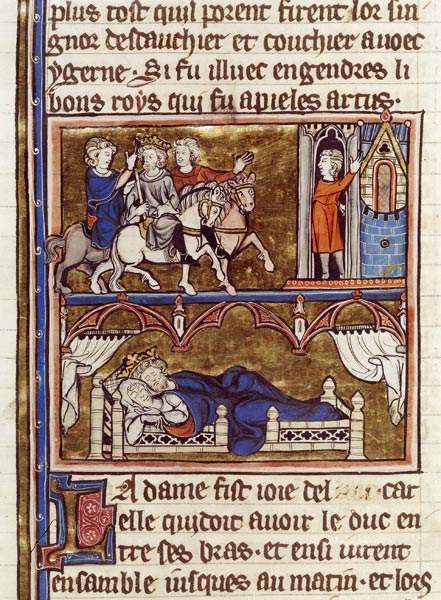 plus tost quil porent firent lor sin
gnor deschauchier et couchier auoec
ygerne. Si fu illuec engendres li
bons roys qui fu apieles artus.
LA dame fist ioie del car
elle quidoit auoir le duc en
tre ses bras. et ensi iurent
ensamble iusques au matin. et lors